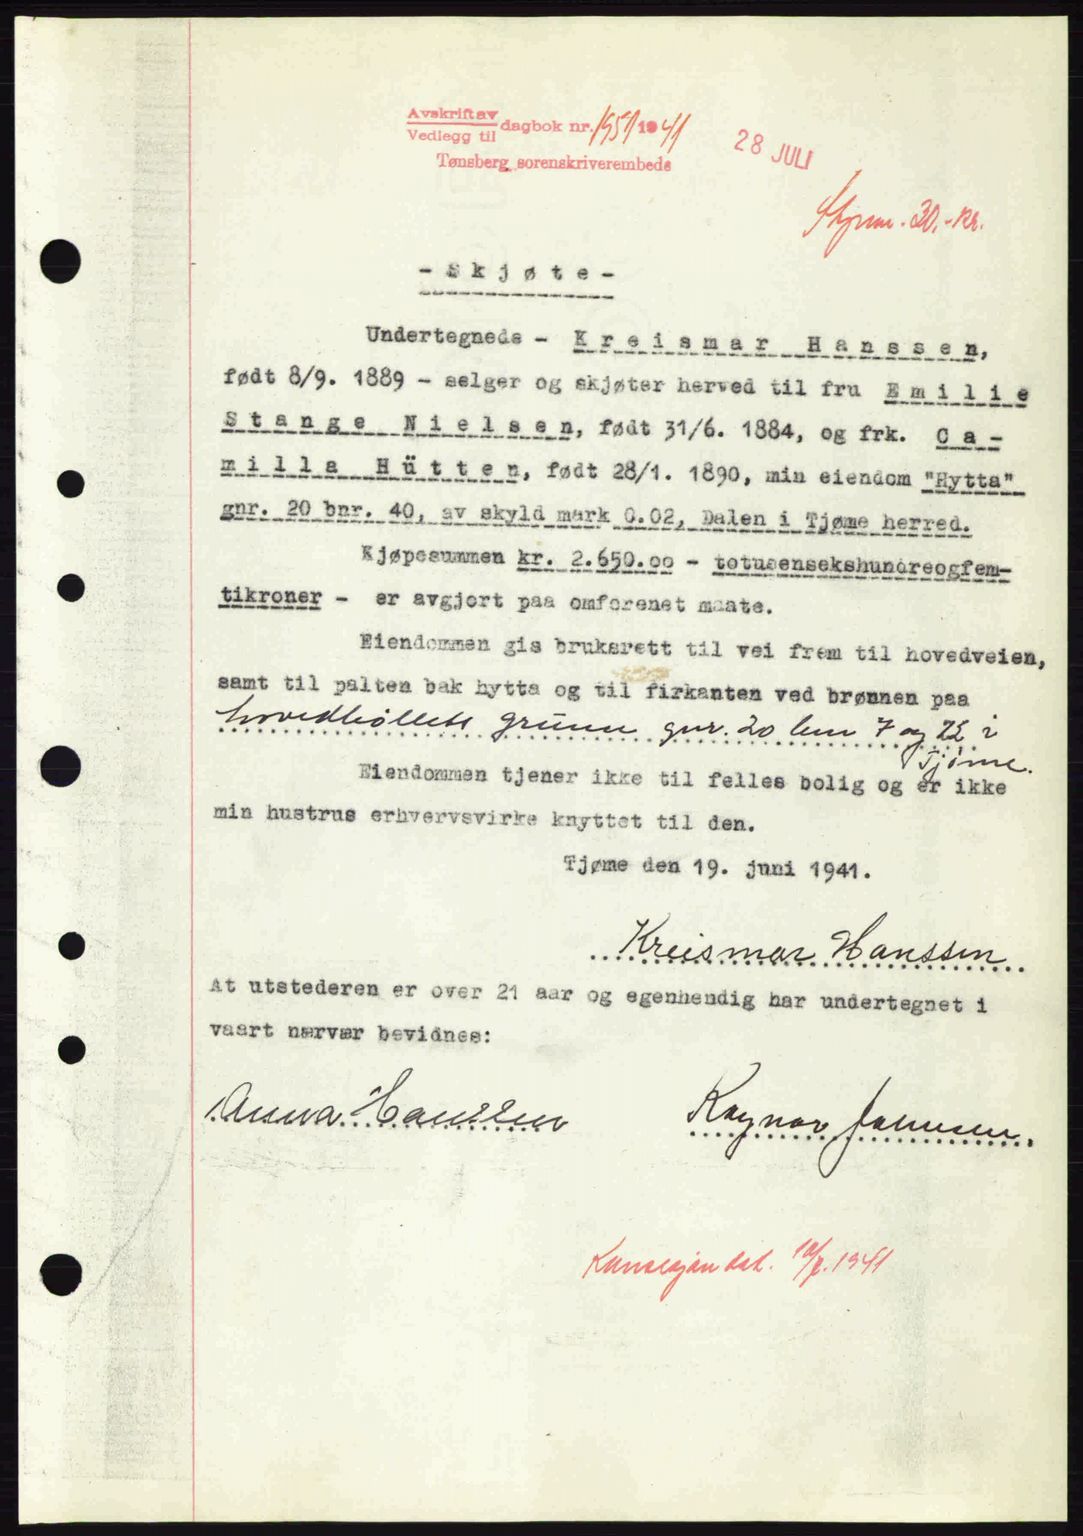 Avskrift av
Vedlegg til dagbok nr. 1957/1941
Tønsberg sorenskriverembede
28 JULI
30.- kr.
- S k j ø t e -
Undertegnede - K r e i s m a r  H a n s s e n,
født 8/9. 1889 - selger og skjøter herved til fru E m i l i e
S t a n g e  N i e l s e n, født 31/6. 1884, og frk. C a -
m i l l a  H ü t t e n, født 28/1. 1890, min eiendom "Hytta"
gnr. 20 bnr. 40, av skyld mark 0.02, Dalen i Tjøme herred.
Kjøpesummen kr. 2.650.00 - totusensekshundreogfem-
tikroner - er avgjort paa omforenet maate.
Eiendommen gis bruksrett til vei frem til hovedveien,
samt til palten bak hytta og til firkanten ved brønnen paa
hovedbøllets grunn gnr. 20 bnr 7 og 22 i
Tjøme.
Eiendommen tjener ikke til felles bolig og er ikke
min hustrus erhvervsvirke knyttet til den.
Tjøme den 19. juni 1941.
Kreismar Hanssen
At utstederen er over 21 aar og egenhendig har undertegnet i
vaart nærvær bevidnes:
Anna Hanssen Ragnar Johnsen.
1941